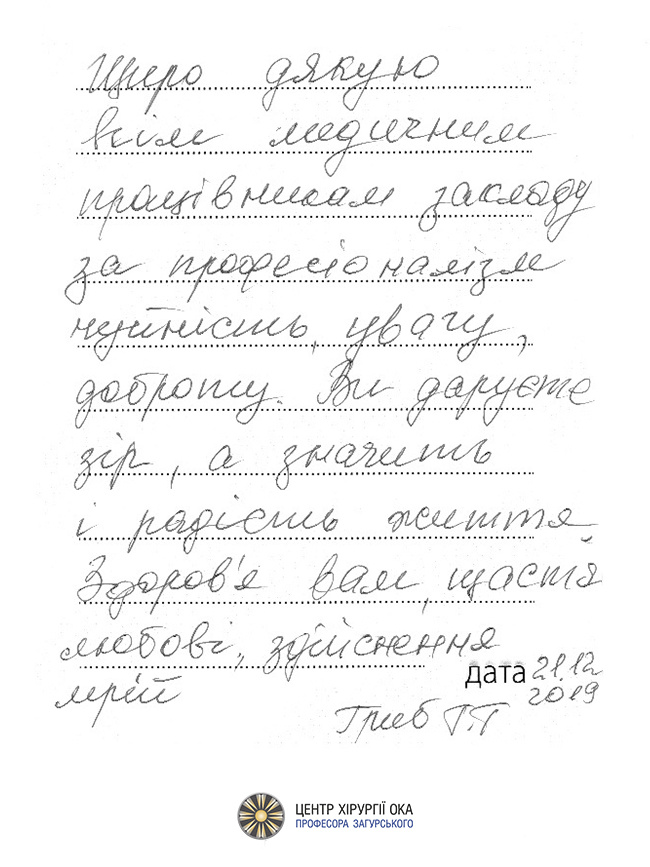 Щиро дякую
всім медичним
працівникам закладу
за професіоналізм
чуйність, увагу,
доброту. Ви даруєте
зір, а значить
і радість життя.
Здоров'я вам, щастя
любові, здійснення
мрій
дата 21.12
2019
Гриб Г.П
ЦЕНТР ХІРУРГІЇ ОКА
ПРОФЕСОРА ЗАГУРСЬКОГО